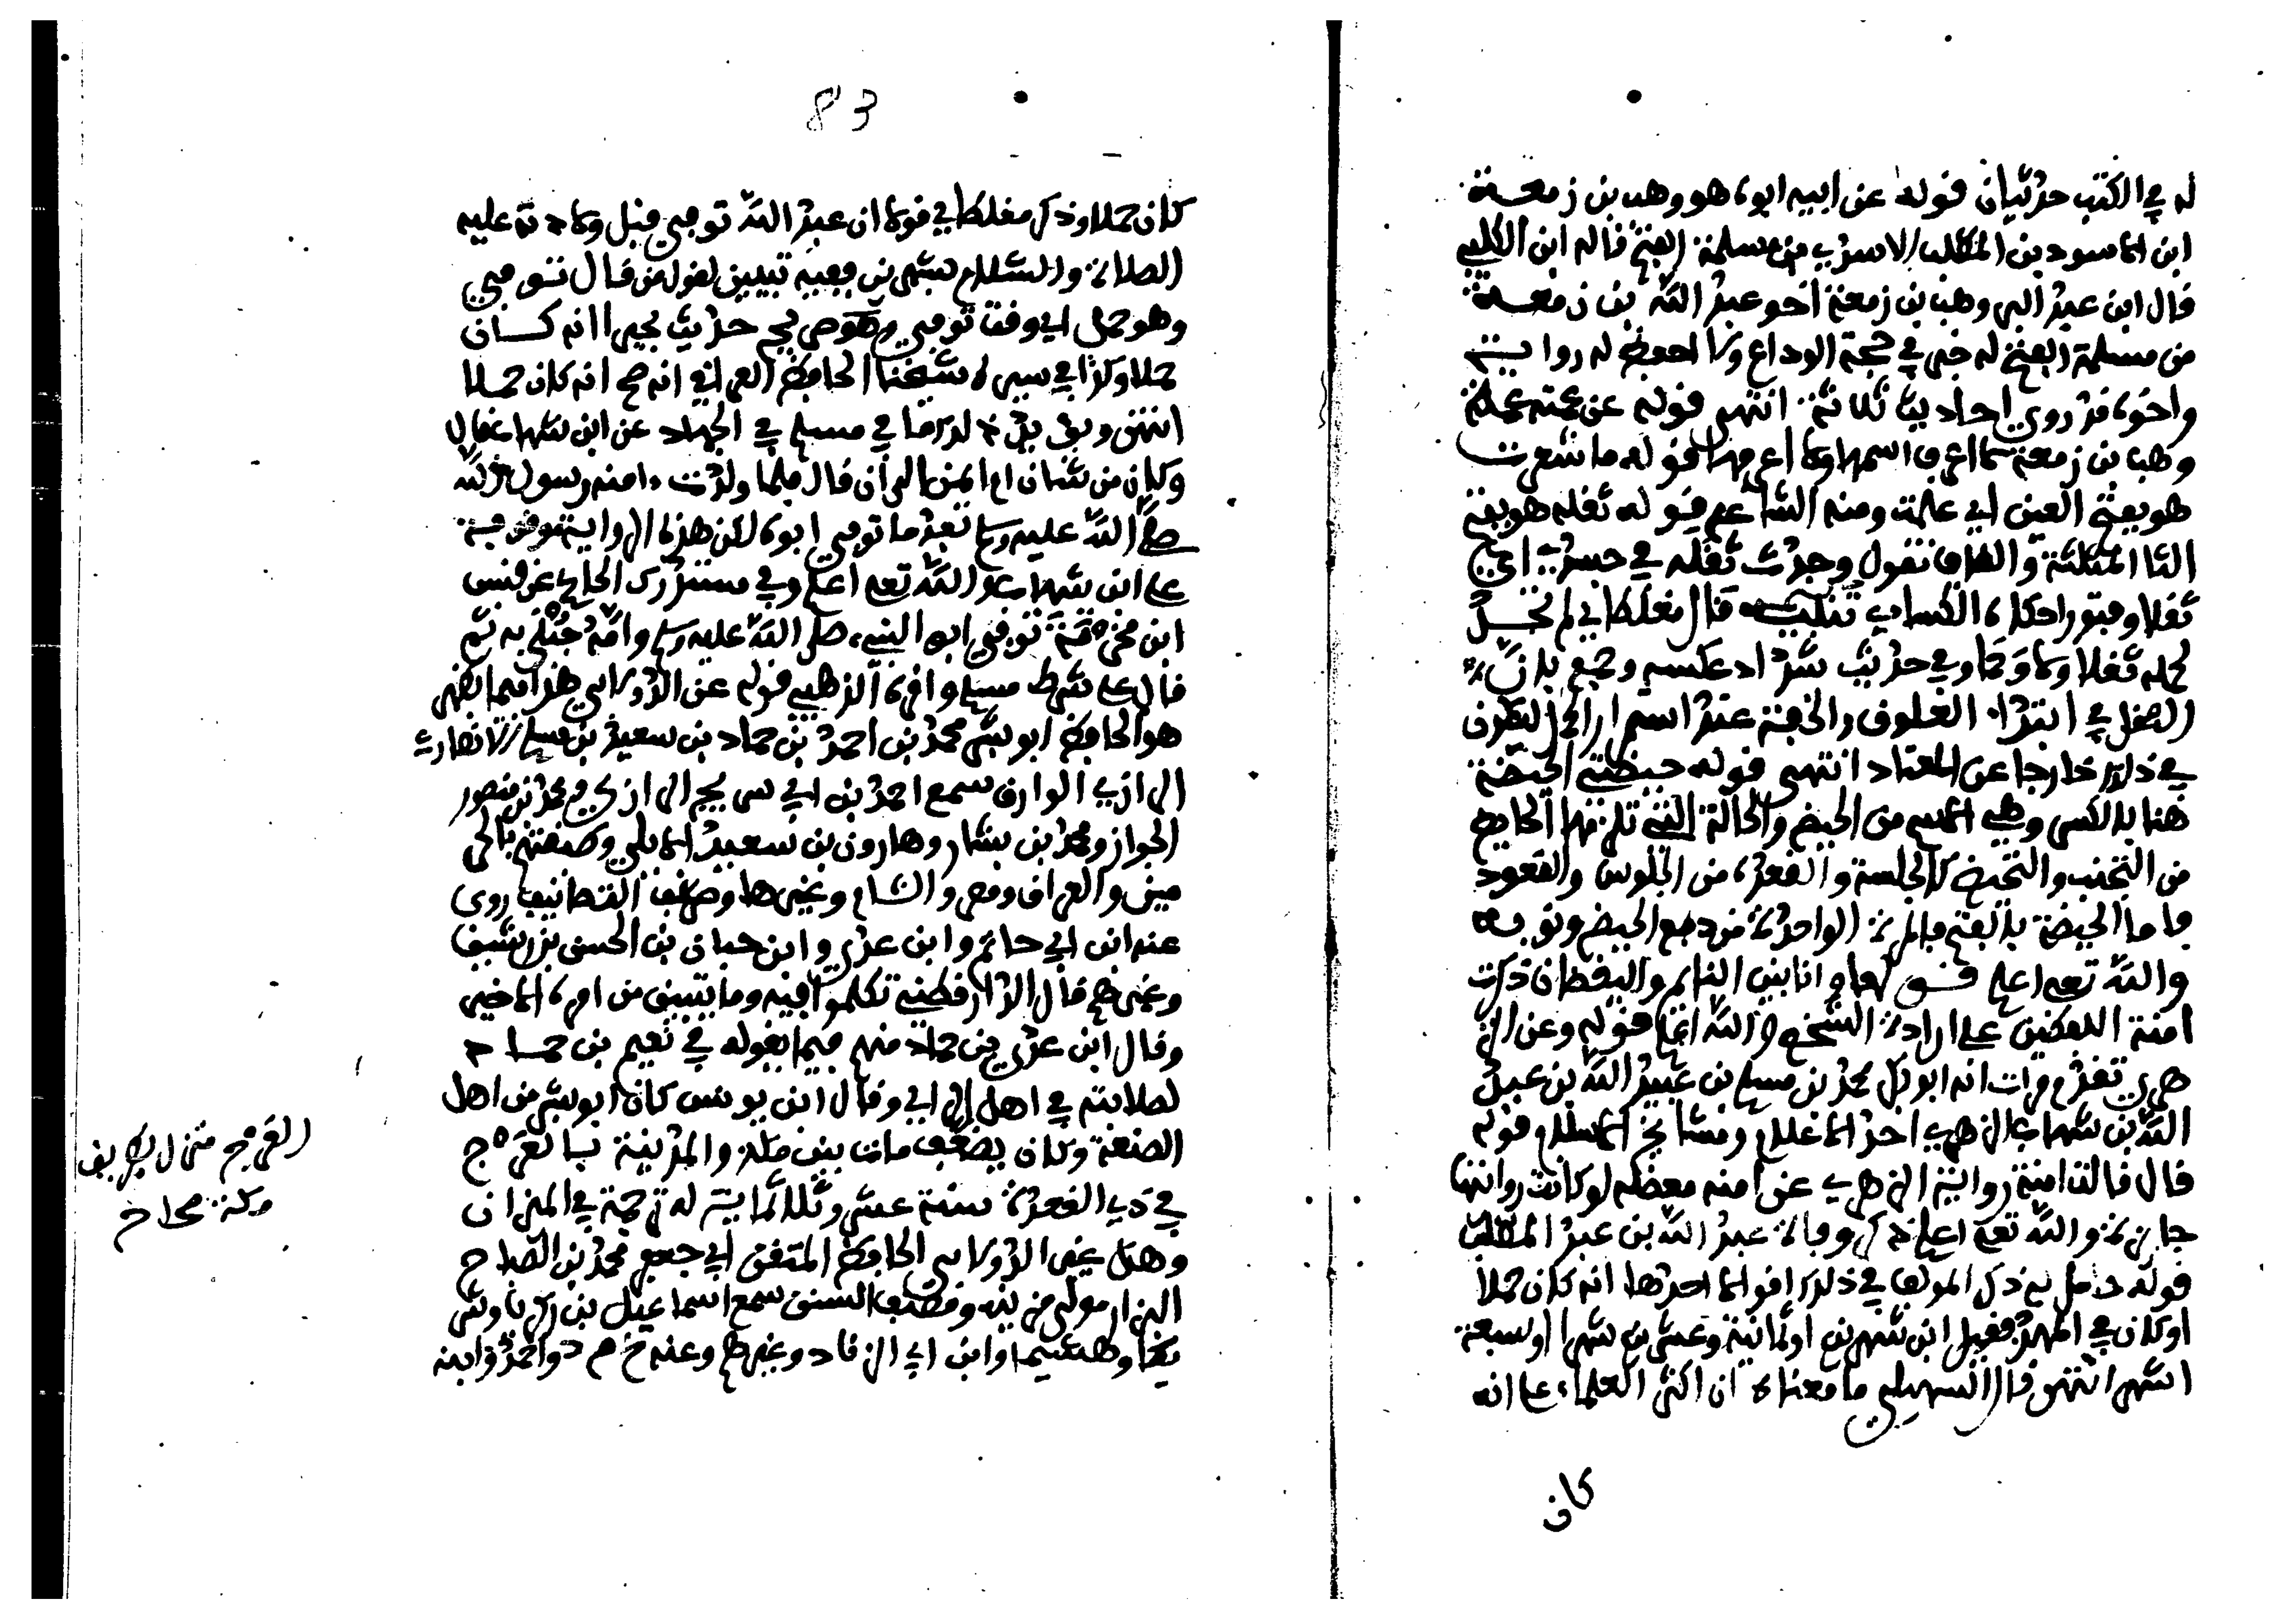 له في الكتب حديثان قوله عن ابيه ابوه هو وهب بن زمعة
ابن الاسود بن المطلب الاسدي من مسلمة الفتح قاله ابن الكلبي
قال ابن عبد البر وهب بن زمعة اخو عبد الله بن زمعة
من مسلمة الفتح له خبر في حجة الوداع ولا احفظ له رواية
واخوه قد روى احاديث ثلاثة انتهى قوله عن عمته عمة
وهب بن زمعة لا اعرف اسمها ولا اعرفها قوله ما شعرت
هو بفتح العين اي علمت ومنه الشاعر قوله ثقله هو بفتح
الثا المثلثة والقاف تقول وجدت ثقلة في جسدي اي
ثقلا وفتورا حكاه الكسائي تنبيه قال مغلطاي لم تجد
لحمله ثقلا ولا وحما وفي حديث شداد عكسه وجمع بان
الثقل في ابتداء العلوق والخفة عند استمرار الحمل ليكون
في ذلك خارجا عن المعتاد انتهى قوله حيضتي الحيضة
هنا بالكسر وهي الاسم من الحيض والحالة التي تلزمها الحايض
من التجنب والتحيض كالجلسة والقعدة من الجلوس والقعود
فاما الحيضة بالفتح فالمرة الواحدة من دفع الحيض ونوبه
والله تعلى اعلم قولها وانا بين النايم واليقظان ذكرت
امنة اللفظين على ارادة الشخص والله اعلم قوله وعن الز
هري تقدم مرات انه ابو بكر محمد بن مسلم بن عبيد الله بن عبد
الله بن شهاب الزهري احد الاعلام ومشايخ الاسلام قوله
قال قالت امنة رواية الزهري عن امنة معضلة لو كانت روايتها
جايزة والله تعلى اعلم ذكر وفاة عبد الله بن عبد المطلب
قوله حامل به ذكر المولف في ذلك اقوالا احدها انه كان حملا
او كان في المهد فقيل ابن شهرين او ثمانية وعشرين شهرا او سبعة
اشهر انتهى قال السهيلي ما معناه ان اكثر العلماء على انه
كان
83
كان حملا وذكر مغلطاي قولا ان عبد الله توفي قبل ولادته عليه
الصلاة والسلام بشهرين ففيه تبيين لقول من قال توفي
وهو حمل اي وقت توفي وهو صريح حديث بحيرا انه كان
حملا وكذا في سيرة شيخنا الحافظ العراقي انه صح انه كان حملا
انتهى ويؤيد ذلك ما في مسلم في الجهاد عن ابن شهاب قال
وكان من شان ام ايمن الى ان قال فلما ولدت امنة رسول الله
صلى الله عليه وسلم بعد ما توفي ابوه لكن هذه الرواية موقوفة
على ابن شهاب والله تعلى اعلم وفي مستدرك الحاكم عن قيس
ابن مخرمة توفي ابو النبي صلى الله عليه وسلم وامه حبلى به ثم
قال على شرط مسلم واقره الذهبي قوله عن الدولابي هذا فيما يظهر
هو الحافظ ابو بشر محمد بن احمد بن حماد بن سعيد بن مسلم الانصاري
الرازي الوراق سمع احمد بن ابي سريج الرازي ومحمد بن منصور
الجواز ومحمد بن بشار وهارون بن سعيد الايلي وطبقتهم بالحر
مين والعراق ومصر والشام وغيرها وصنف التصانيف روى
عنه ابن ابي حاتم وابن عدي وابن حبان بن الحسن بن رشيق
وغيرهم قال الدارقطني تكلموا فيه وما يتبين من امره الا خير
وقال ابن عدي ابن حماد متهم فيما يقوله في نعيم بن حماد
لصلابته في اهل الراي وقال ابن يونس كان ابو بشر من اهل
الصنعة وكان يضعف مات بين مكة والمدينة بالعرج
في ذي القعدة سنة عشر وثلاثماية له ترجمة في الميزان
وهنا غير الدولابي الحافظ المتقن ابي جعفر محمد بن الصباح
البزار مولى مزينة ومصنف السنن سمع اسماعيل بن زكريا وشر
يكا وهشيما وابن ابي الزناد وغيرهم وعنه خ م د واحمد وابنه
العرج منزل بطريق
مكة صحاح